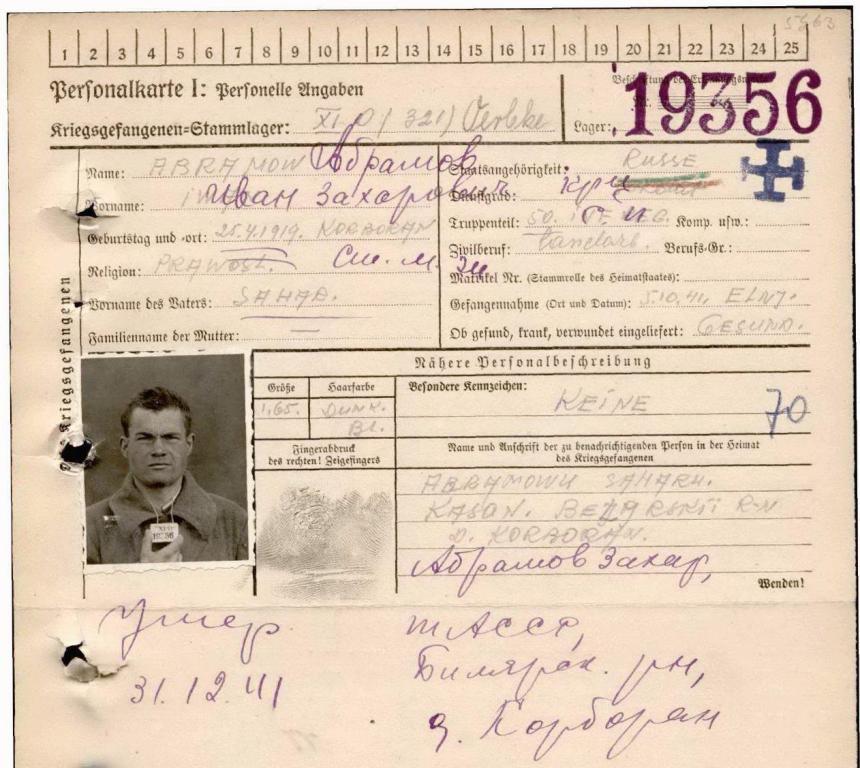 5563
1 2 3 4 5 6 7 8 9 10 11 12 13 14 15 16 17 18 19 20 21 22 23 24 25
Personalkarte I: Personelle Angaben
Kriegsgefangenen-Stammlager: XI D (321) Oerbke
Lager: 19356
Name: ABRAMOW Абрамов
Vorname: Иван Захарович
Geburtstag und -ort: 25.4.1919. KORBORAN
Religion: PRAWOSL. См. м.
Vorname des Vaters: SAHAR.
Familienname der Mutter:
Staatsangehörigkeit: RUSSE
Dienstgrad:
Truppenteil: 50. Komp. usw.:
Zivilberuf: Landarb. Berufs-Gr.:
Matrikel Nr. (Stammrolle des Heimatstaates):
Gefangennahme (Ort und Datum): 5.10.41. ELNJ.
Ob gesund, krank, verwundet eingeliefert: GESUND.
des Kriegsgefangenen
Nähere Personalbeschreibung
Größe Haarfarbe
1,65. DUNK. BL.
Besondere Kennzeichen:
KEINE
70
Fingerabdruck
des rechten! Zeigefingers
Name und Anschrift der zu benachrichtigenden Person in der Heimat
des Kriegsgefangenen
ABRAMOW SAHAR.
KASAN. R-N
D. KORBORAN.
Абрамов Захар,
Wenden!
Умер.
31.12.41
тАССР,
Билярск. рн,
д. Корборан